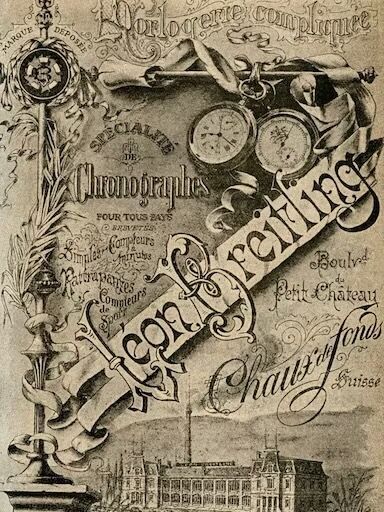 Horlogerie compliquée
MARQUE DÉPOSÉE
SPÉCIALITÉ
DE
Chronographes
POUR TOUS PAYS
BREVETÉS
Simples, Compteurs
Rattrapantes
Compteurs
de Sport
Leon Breitling
Boulvd
du
Petit Château
Chaux de fonds
Suisse
LEON BREITLING